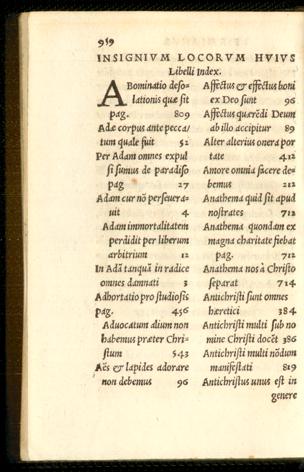 919
INSIGNIVM LOCORVM HVIVS
Libelli Index.
ABominatio deso-
lationis quæ sit
pag. 809
Adæ corpus ante pecca/
tum quale fuit 52
Per Adam omnes expul
si sumus de paradiso
pag 27
Adam cur nō perseuera-
uit 4
Adam immortalitatem
perdidit per liberum
arbitrium 12
In Adā tanquā in radice
omnes damnati 3
Adhortatio pro studiosis
pag. 456
Aduocatum alium non
habemus præter Chri-
stum 543
Aës & lapides adorare
non debemus 96
Affectus & effectus boni
ex Deo sunt 96
Affectus quærēdi Deum
ab illo accipitur 89
Alter alterius onera por
tate 412
Amore omnia facere de-
bemus 212
Anathema quid sit apud
nostrates 713
Anathema quondam ex
magna charitate fiebat
pag. 712
Anathema nos à Christo
separat 714
Antichristi sunt omnes
hæretici 384
Antichristi multi sub no
mine Christi docēt 386
Antichristi multi nōdum
manifestati 819
Antichristus unus est in
genere